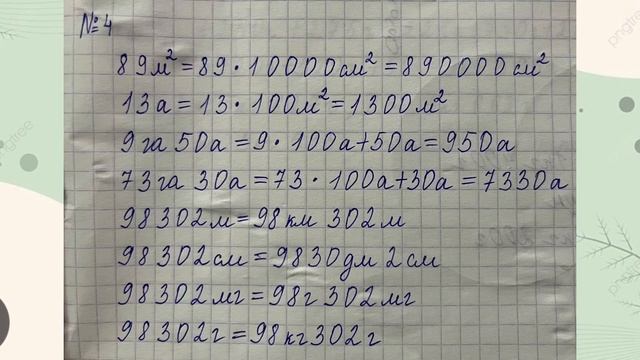 №4
89м²=89·10000см²=890000см²
13а=13·100м²=1300м²
9га 50а=9·100а+50а=950а
73га 30а=73·100а+30а=7330а
98302м=98км 302м
98302см=9830дм 2см
98302мг=98г 302мг
98302г=98кг302г
pngtree
pngtree